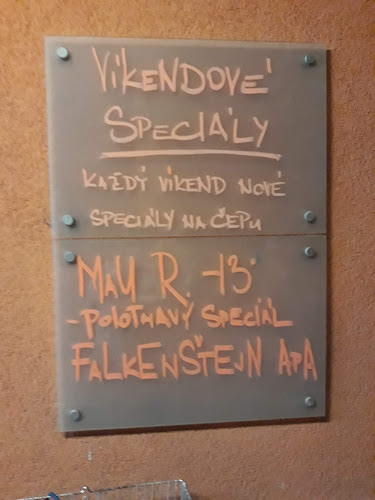 VÍKENDOVÉ
SPECIÁLY
KAŽDÝ VÍKEND NOVÉ
SPECIÁLY NA ČEPU
MAU R. -13°
-POLOTMAVÝ SPECIÁL
FALKENŠTEJN APA